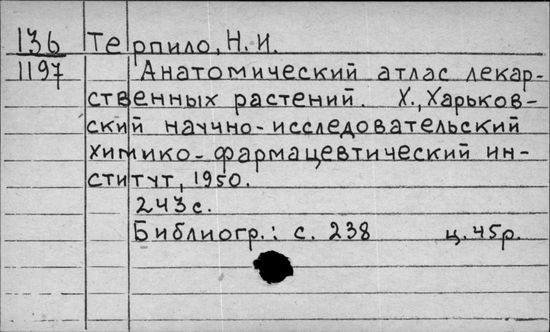 136 Терпило, Н. И.
1197 Анатомический атлас лекар-
ственных растений. Х., Харьков-
ский научно-исследовательский
химико-фармацевтический ин-
ститут, 1950.
243 с.
Библиогр.: с. 238 ц. 45р.